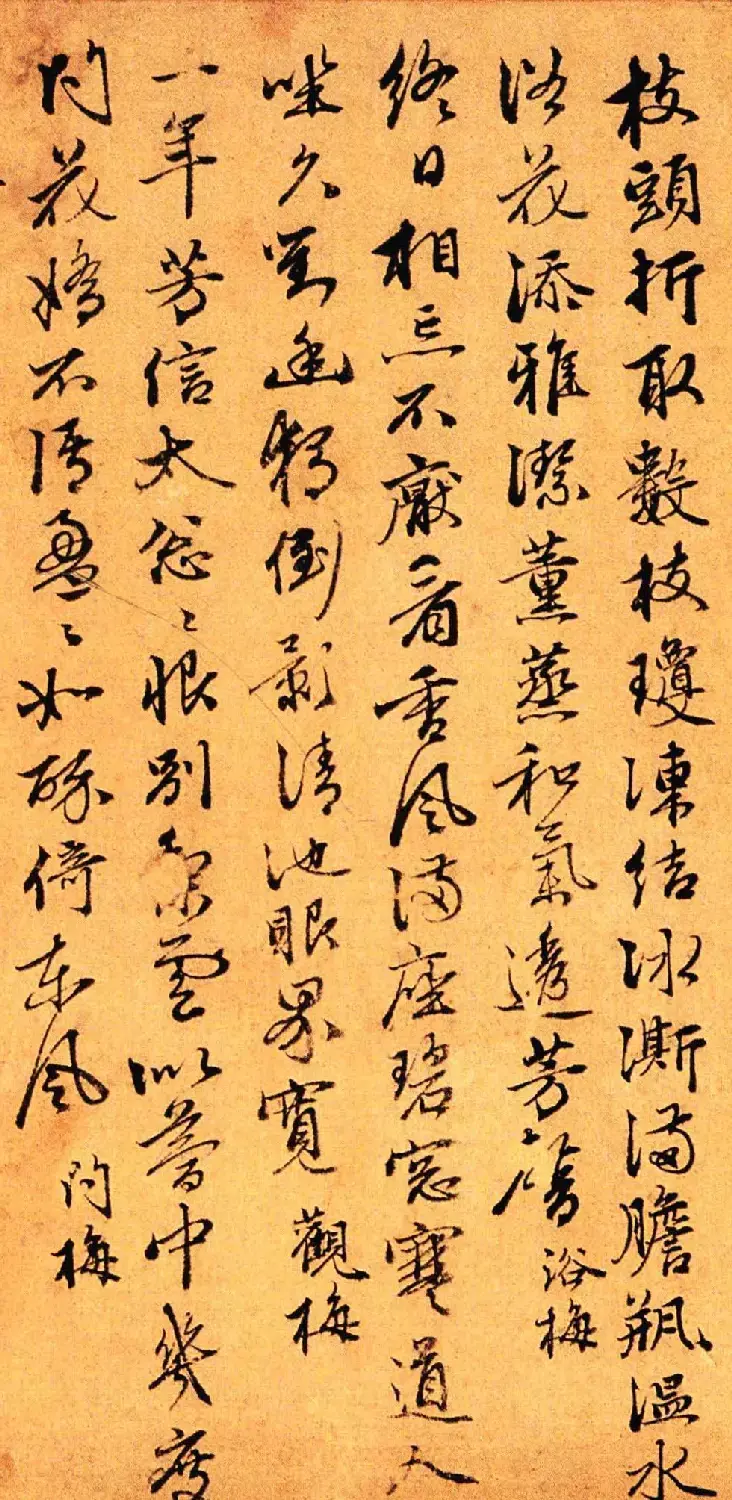 枝頭折取數枝瓊凍結冰澌滿膽瓶溫水
浴花添雅潔薰蒸和氣透芳馨 浴梅
終日相忘不厭看香風滿座碧窓寒道人
坐久倒影清池眼界寬 觀梅
一年芳信太怱〻恨別梨雲似夢中幾度
問花嬌不語盈〻如醉倚東風 問梅